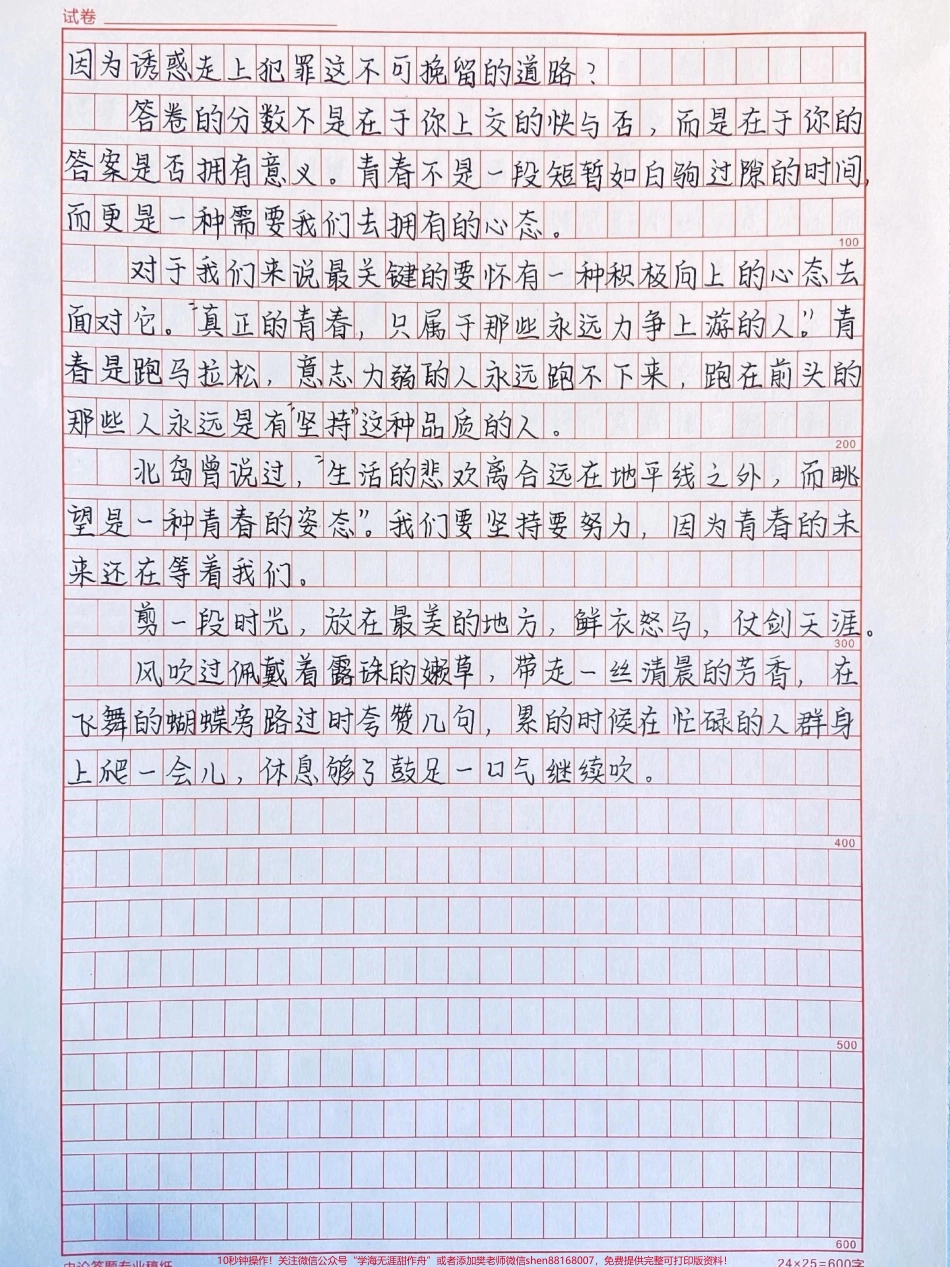 试卷
因为诱惑走上犯罪这不可挽留的道路？
答卷的分数不是在于你上交的快与否，而是在于你的
答案是否拥有意义。青春不是一段短暂如白驹过隙的时间，
而更是一种需要我们去拥有的心态。
100
对于我们来说最关键的要怀有一种积极向上的心态去
面对它。“真正的青春，只属于那些永远力争上游的人。”青
春是跑马拉松，意志力弱的人永远跑不下来，跑在前头的
那些人永远是有“坚持”这种品质的人。
200
北岛曾说过，“生活的悲欢离合远在地平线之外，而眺
望是一种青春的姿态”。我们要坚持要努力，因为青春的未
来还在等着我们。
剪一段时光，放在最美的地方，鲜衣怒马，仗剑天涯。
300
风吹过佩戴着露珠的嫩草，带走一丝清晨的芳香，在
飞舞的蝴蝶旁路过时夸赞几句，累的时候在忙碌的人群身
上爬一会儿，休息够了鼓足一口气继续吹。
400
500
600
10秒钟操作！关注微信公众号“学海无涯甜作舟”或者添加樊老师微信shen88168007，免费提供完整可打印版资料！
24×25=600字